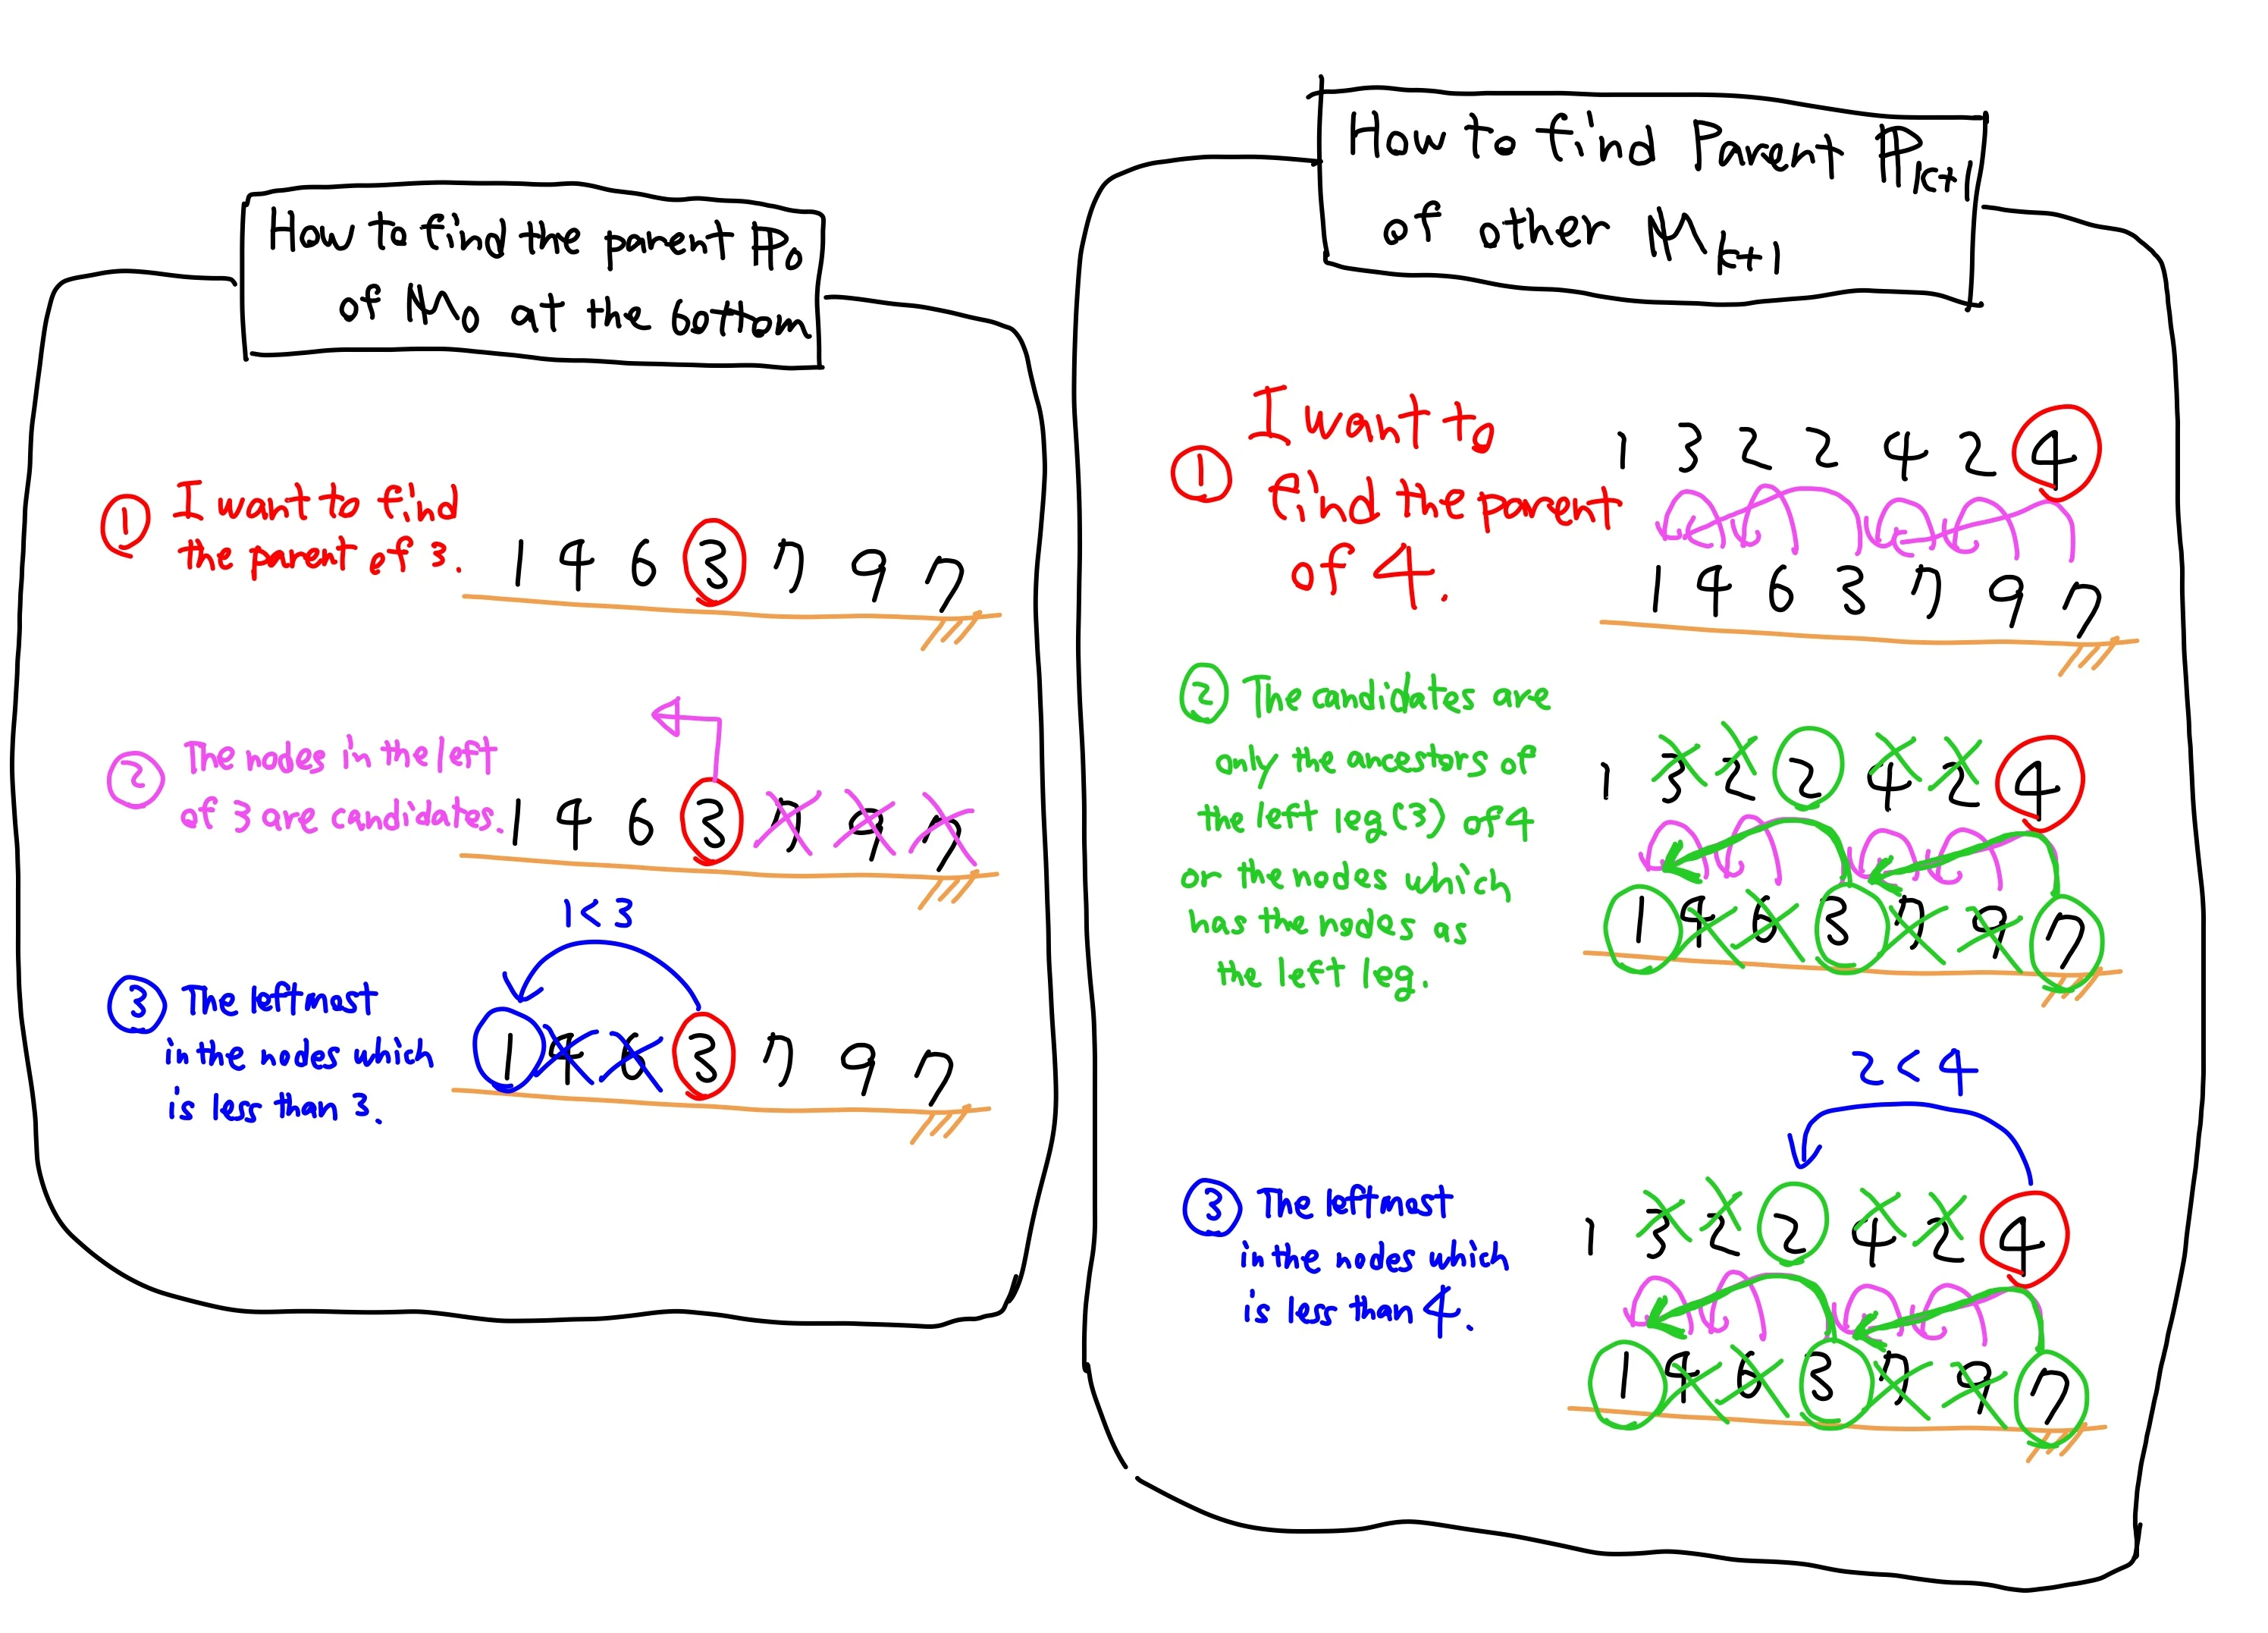 How to find the parent ℙ₀
of 𝕄₀ at the bottom
① I want to find
the parent of 3.
1 4 6 3 7 9 7
② The nodes in the left
of 3 are candidates.
1 4 6 3 7 9 7
1 < 3
③ The leftmost
in the nodes which
is less than 3.
1 4 6 3 7 9 7
How to find Parent ℙk+1
of other 𝕄k+1
① I want to
find the parent
of 4.
1 3 2 2 4 2 4
1 4 6 3 7 9 7
② The candidates are
only the ancestors of
the left leg (3) of 4
or the nodes which
has the nodes as
the left leg.
1 3 2 2 4 2 4
1 4 6 3 7 9 7
2 < 4
③ The leftmost
in the nodes which
is less than 4.
1 3 2 2 4 2 4
1 4 6 3 7 9 7